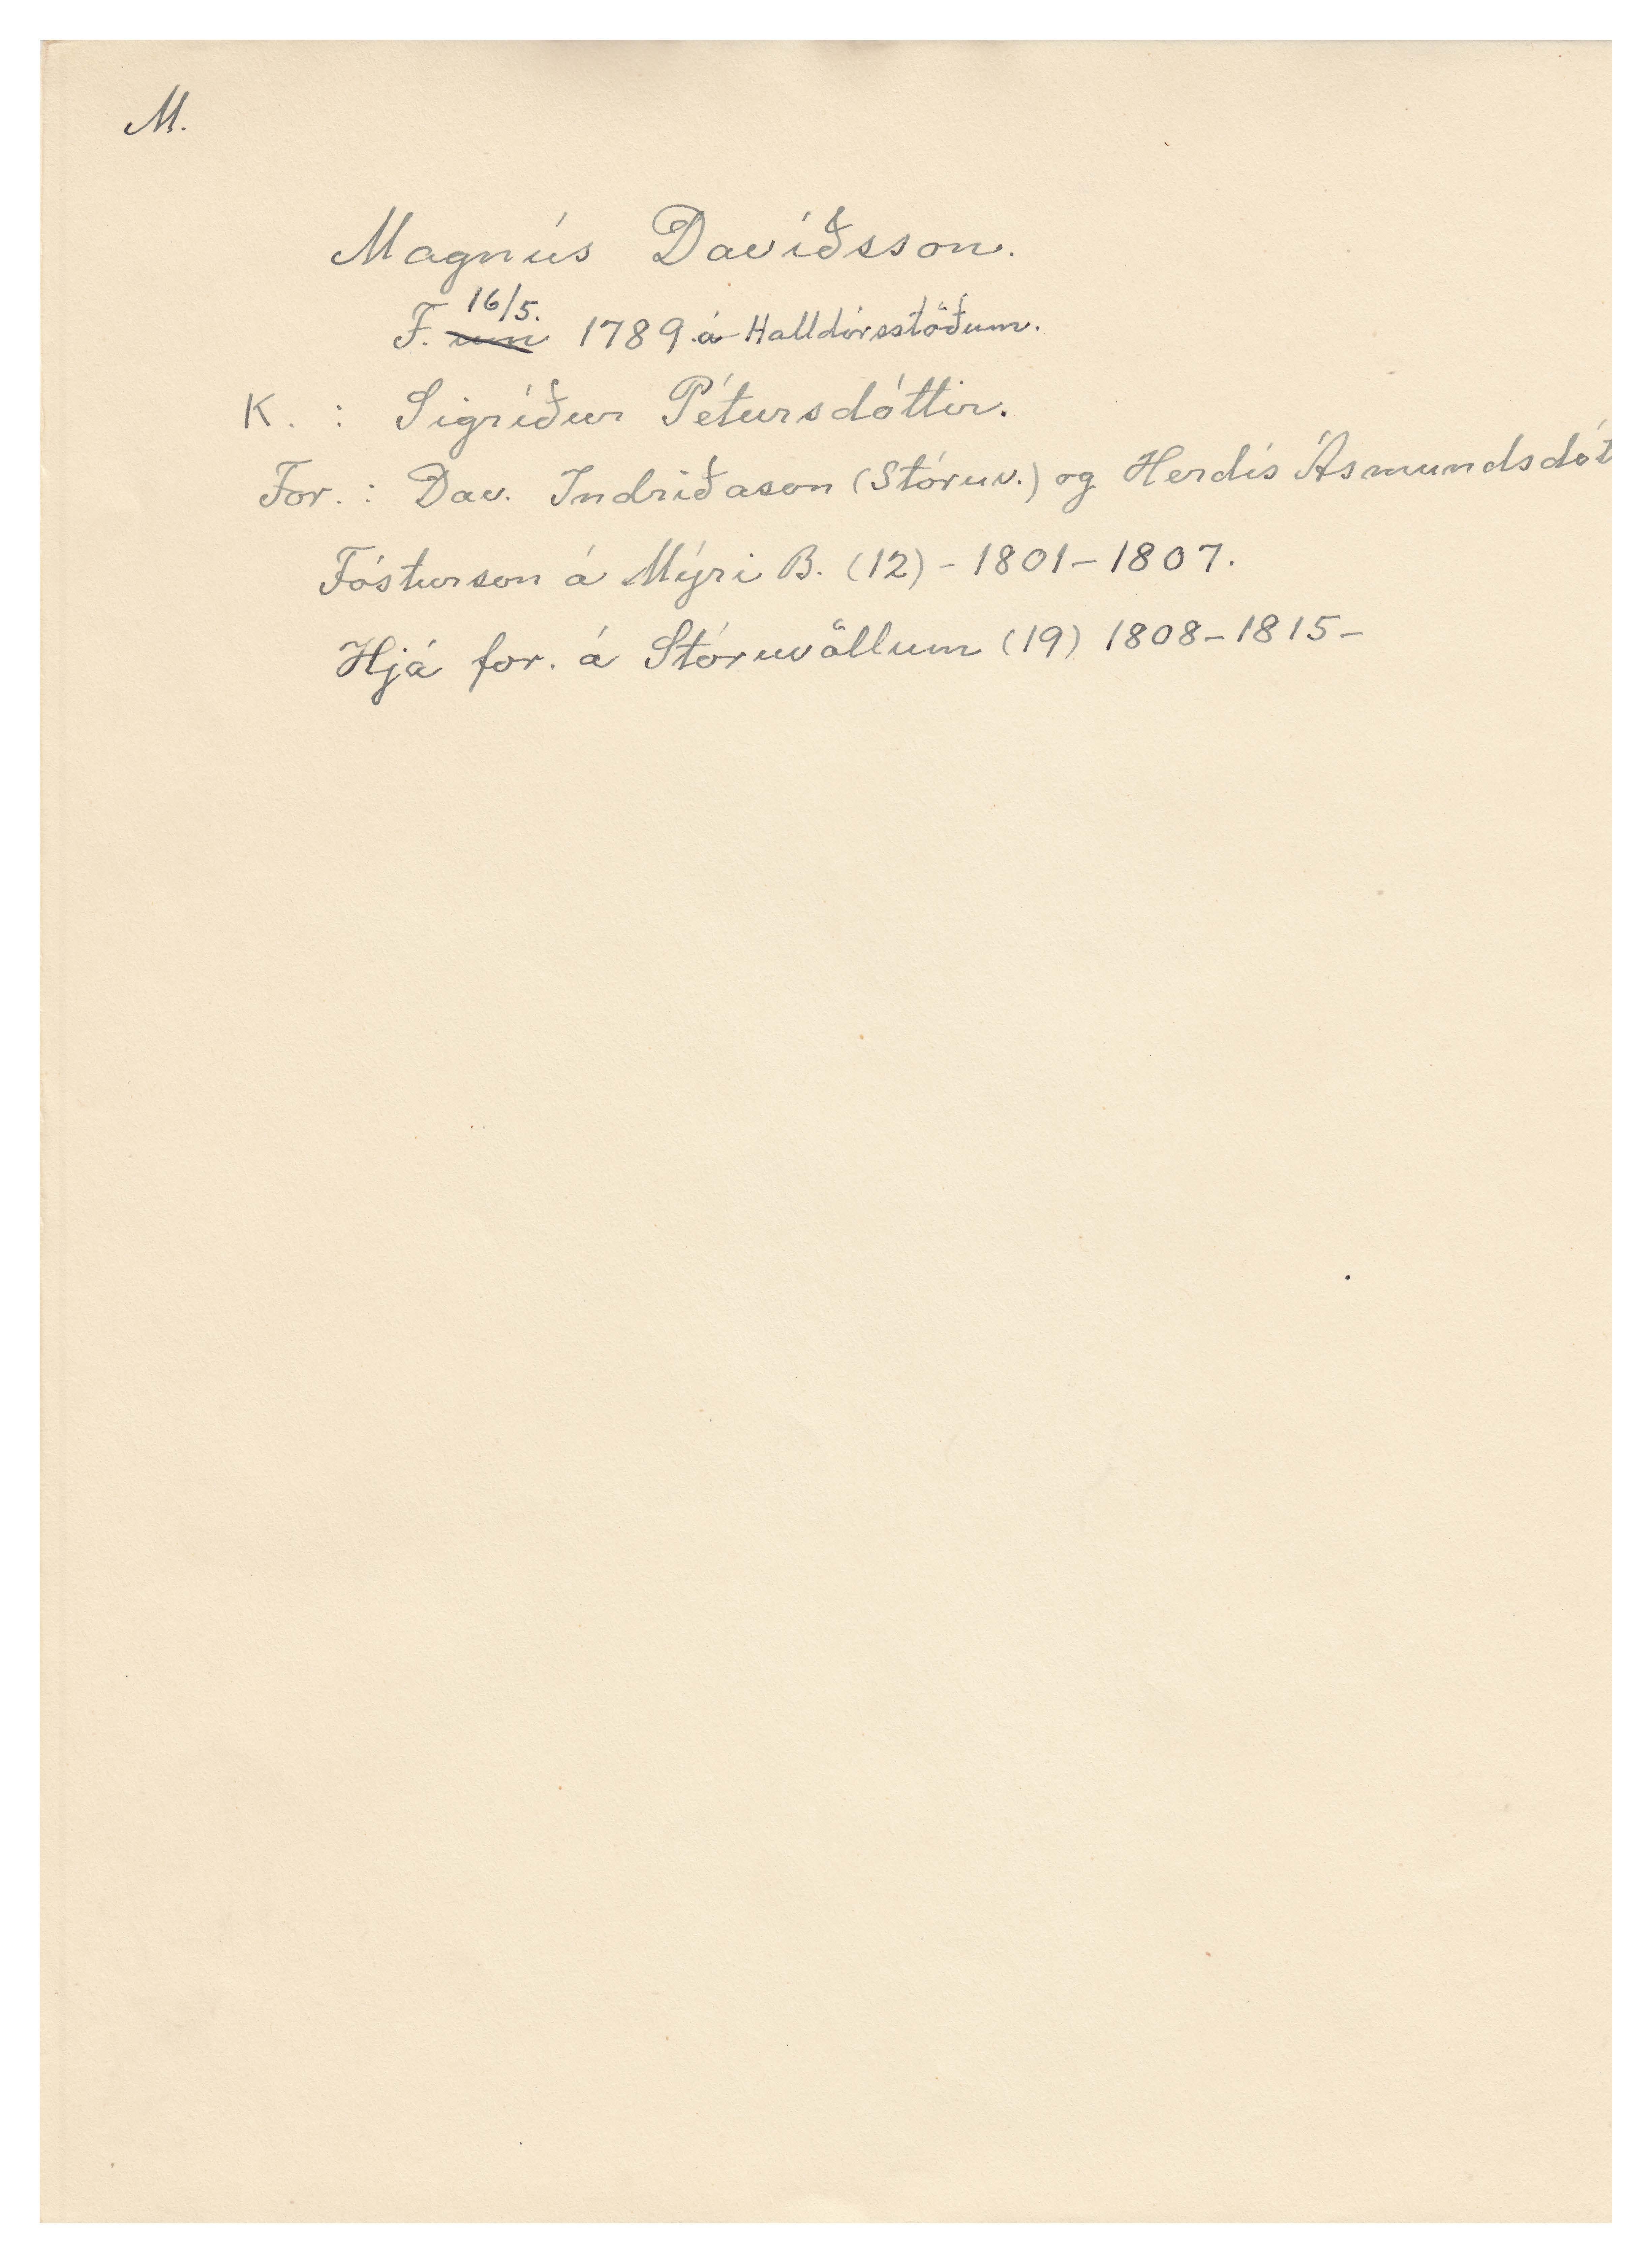 M.
Magnús Davíðsson.
F. um 16/5. 1789 á Halldórsstöðum.
K. : Sigríður Pétursdóttir.
For. : Dav. Indriðason (Stóruv.) og Herdís Ásmundsdót
Fósturson á Mýri B. (12) - 1801 - 1807.
Hjá for. á Stóruvöllum (19) 1808 - 1815 -